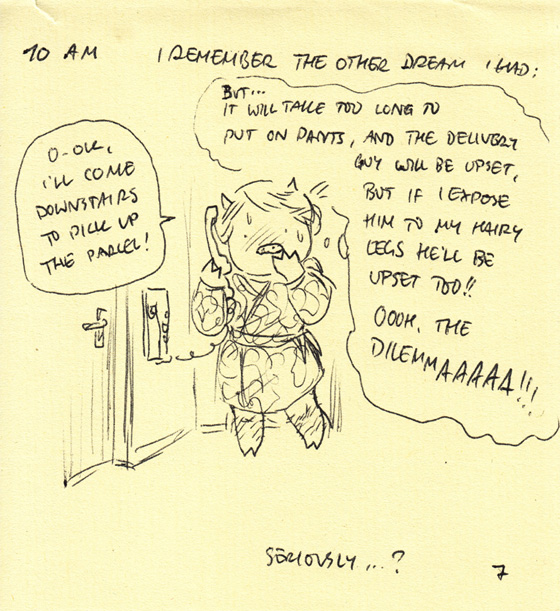 10 AM
I REMEMBER THE OTHER DREAM I HAD:
O-OK,
I'LL COME
DOWNSTAIRS
TO PICK UP
THE PARCEL!
BUT...
IT WILL TAKE TOO LONG TO
PUT ON PANTS, AND THE DELIVERY
GUY WILL BE UPSET,
BUT IF I EXPOSE
HIM TO MY HAIRY
LEGS HE'LL BE
UPSET TOO!!
OOOH, THE
DILEMMAAAAA!!!
SERIOUSLY...?
7